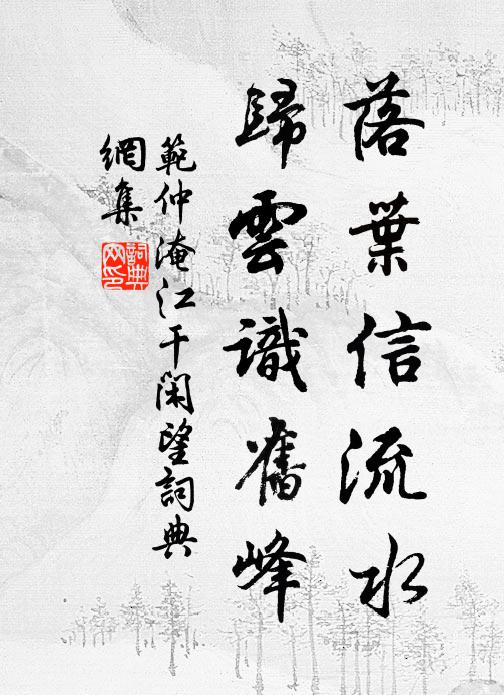 落葉信流水
歸雲識舊峰
範仲淹江干閑望詞典
網集
詞典
网印